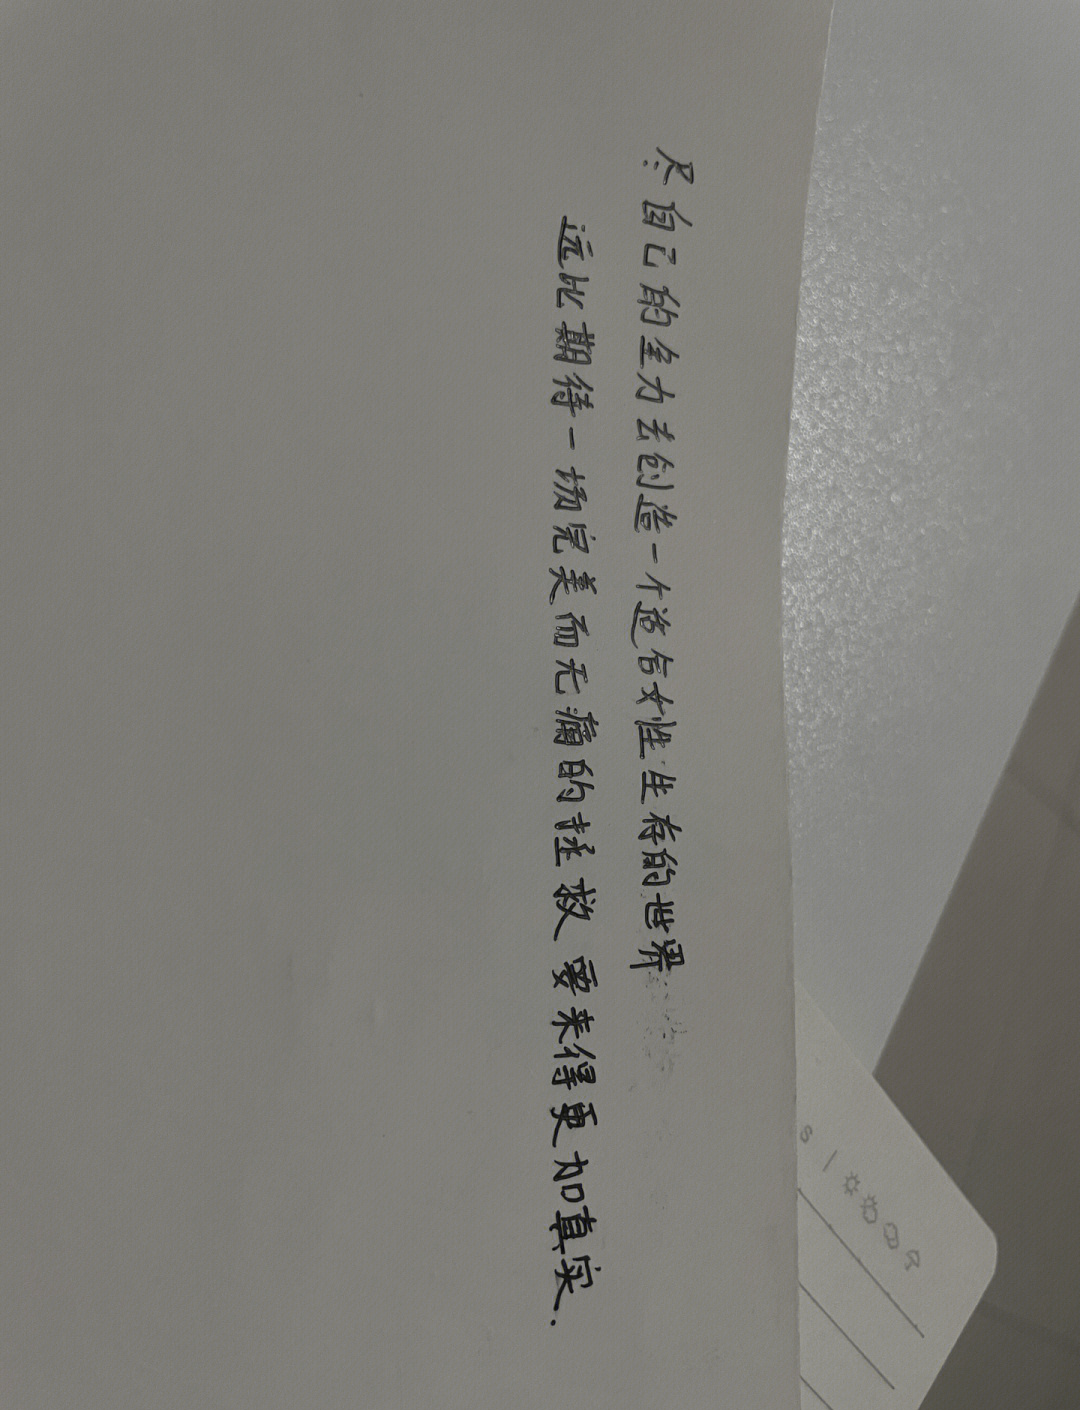 尽自己的全力去创造一个适合女性生存的世界
远比期待一场完美而无痛的拯救要来得更加真实.